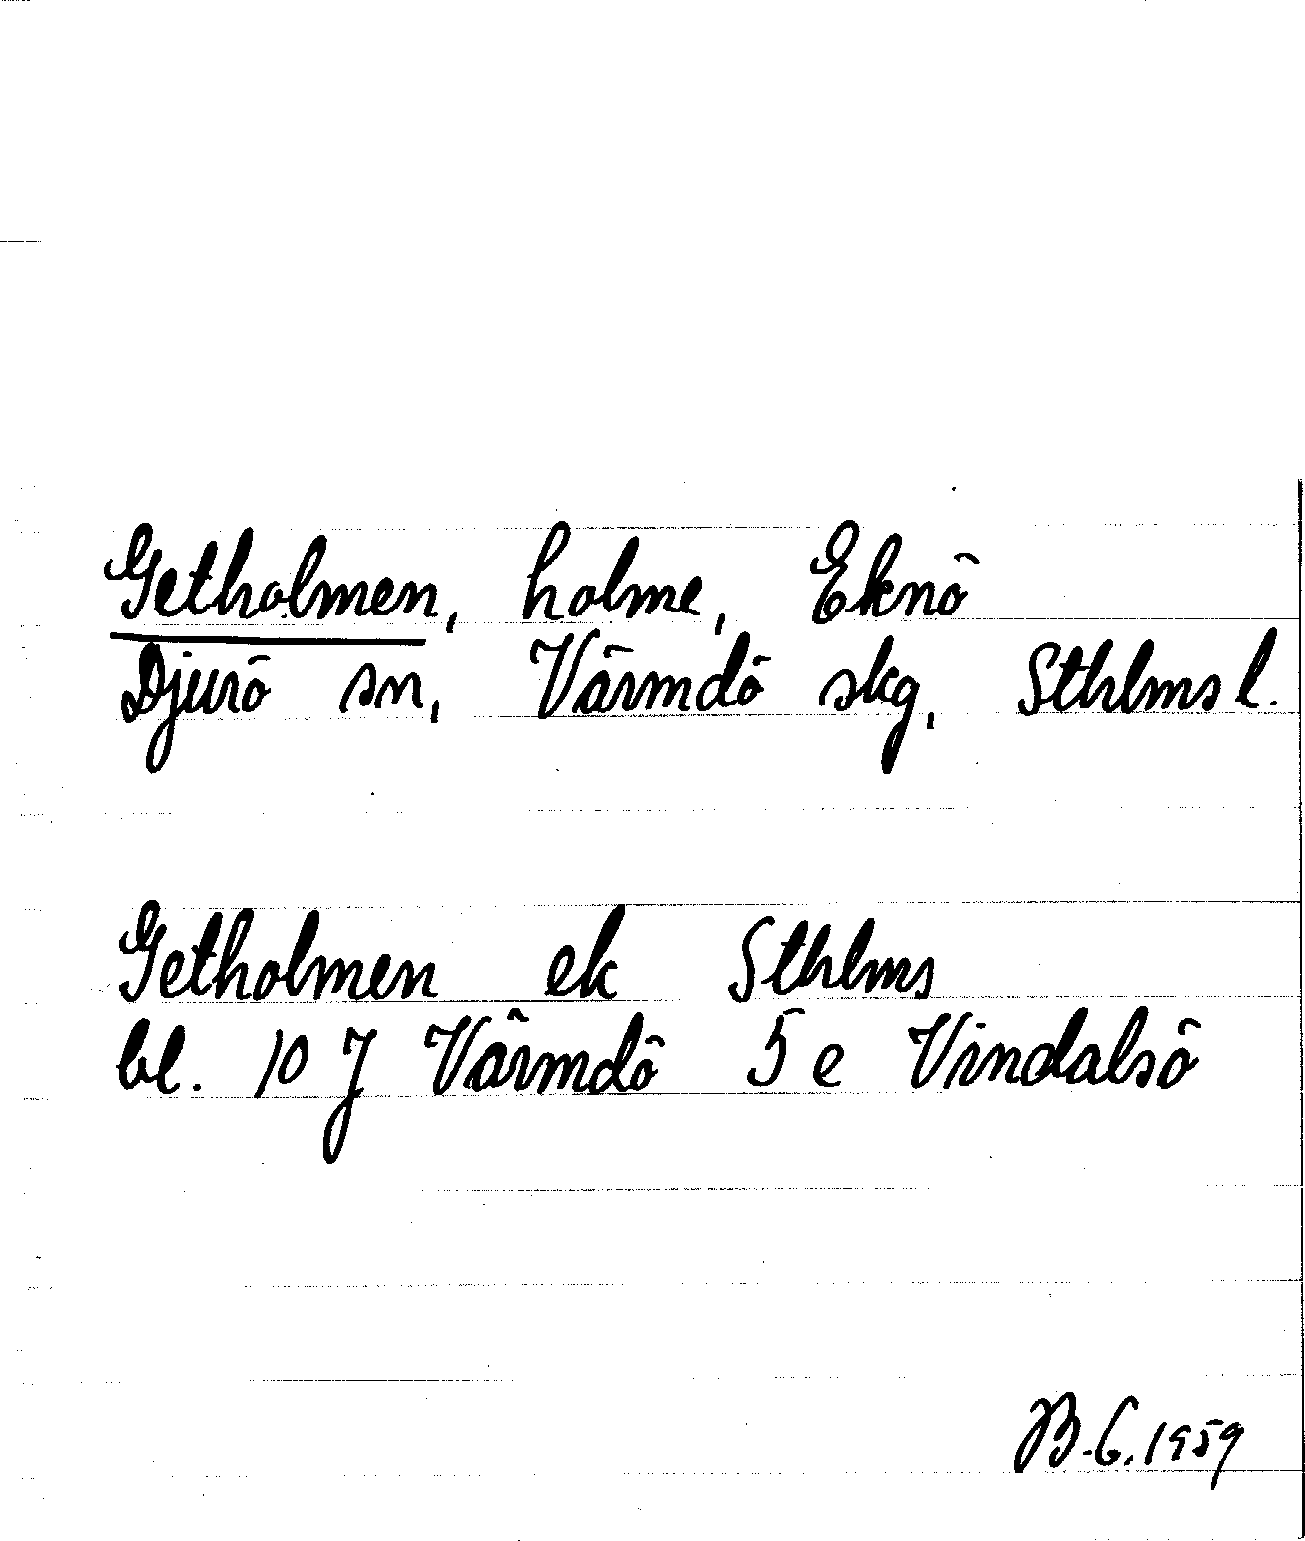 Getholmen, holme, Eknö
Djurö sn, Värmdö skg, Sthlms l.
Getholmen ek Sthlms
bl. 10 J Värmdö 5 e Vindalsö
B. G. 1959